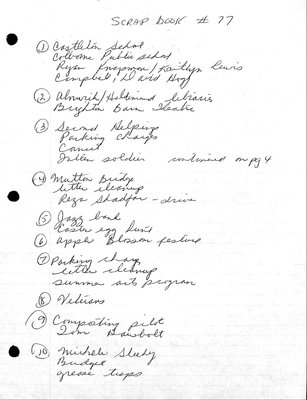 SCRAP BOOK # 77
① Castleton School
Colborne Public school
Ryan Knapman / Kaitlyn Lewis
Campbell, David Hogg
② Alnwick/Haldimand libraries
Brighton Barn Theatre
③ Second Helping
Parking charges
Cancer
Fallen soldier continued on pg 4
④ Mutton Bridge
litter cleanup
Reza Shadfar - drive
⑤ Jazz band
Easter egg hunt
⑥ Apple Blossom festival
⑦ Parking charges
litter cleanup
summer arts program
⑧ Veterans
⑨ Composting pilot
Tom
⑩ Michele
Budget
grease traps